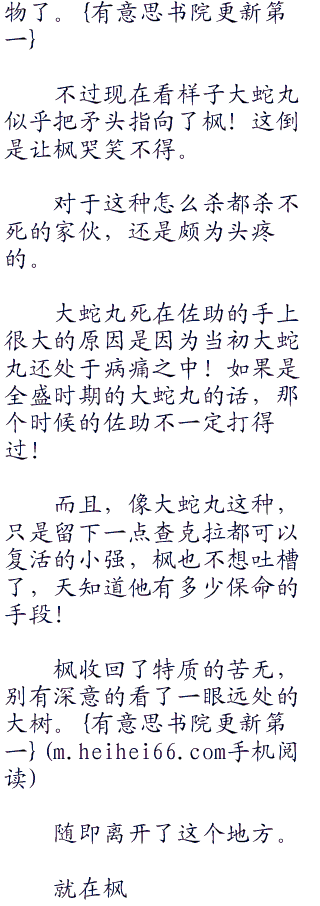 物了。{有意思书院更新第
一}
不过现在看样子大蛇丸
似乎把矛头指向了枫！这倒
是让枫哭笑不得。
对于这种怎么杀都杀不
死的家伙，还是颇为头疼
的。
大蛇丸死在佐助的手上
很大的原因是因为当初大蛇
丸还处于病痛之中！如果是
全盛时期的大蛇丸的话，那
个时候的佐助不一定打得
过！
而且，像大蛇丸这种，
只是留下一点查克拉都可以
复活的小强，枫也不想吐槽
了，天知道他有多少保命的
手段！
枫收回了特质的苦无，
别有深意的看了一眼远处的
大树。{有意思书院更新第
一}(m.heihei66.com手机阅
读)
随即离开了这个地方。
就在枫